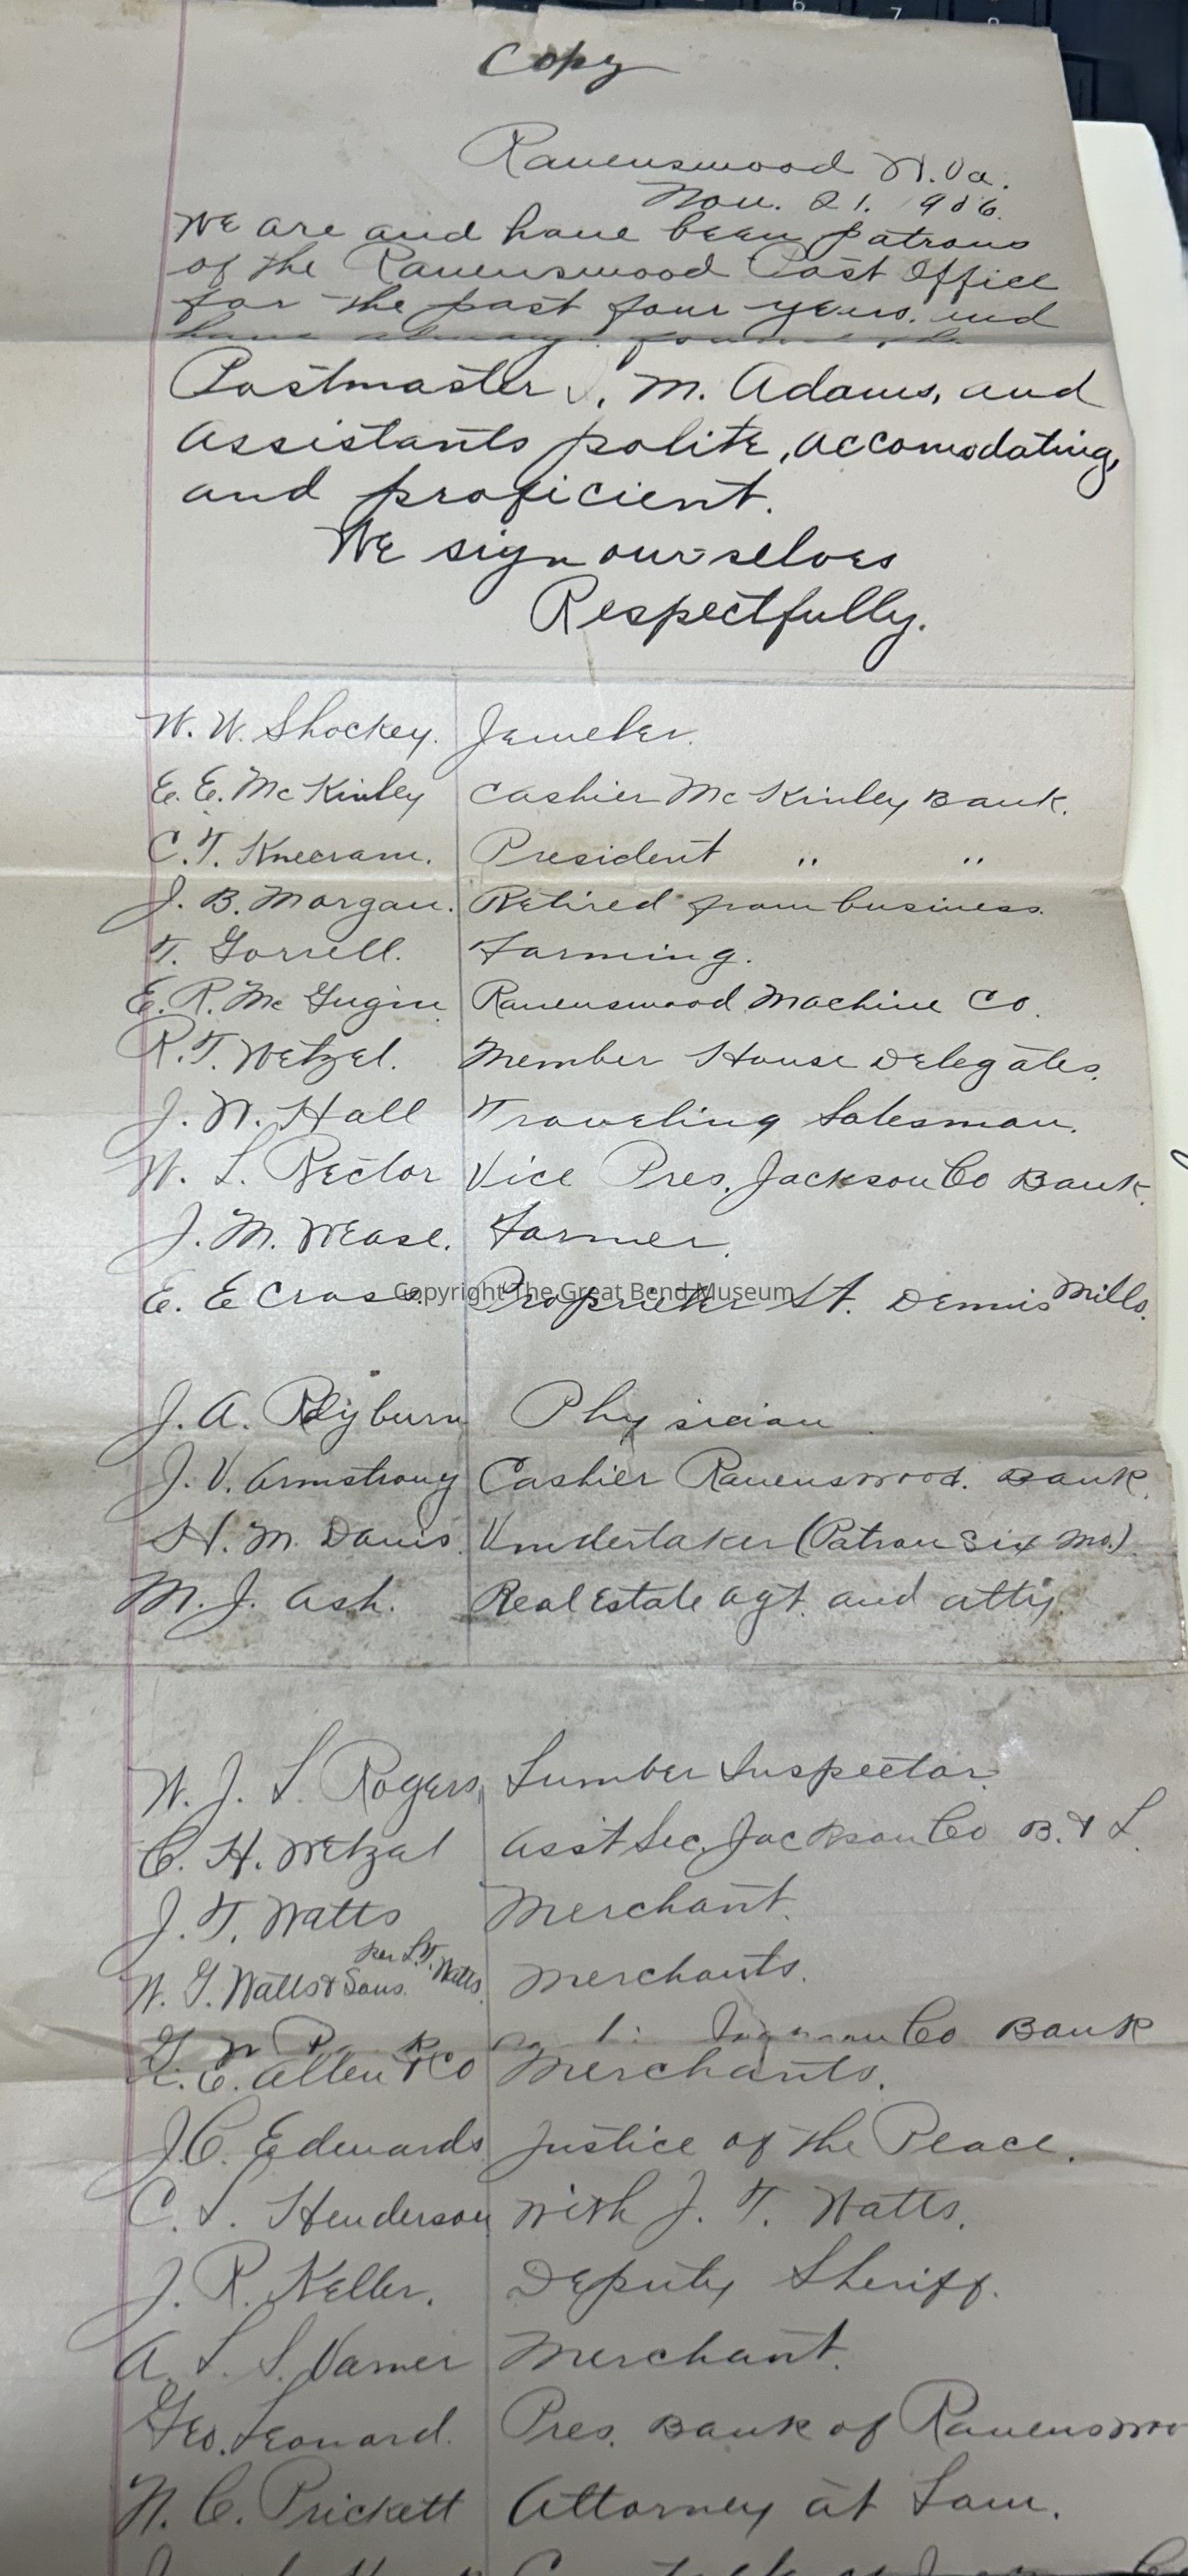 Copy
Ravenswood W.Va.
Nov. 21. 1906.
We are and have been patrons
of the Ravenswood Post Office
for the past four years. and
have always found the
Postmaster M. Adams, and
Assistants polite, accomodating,
and proficient.
We sign ourselves
Respectfully.
W. W. Shockey. Jeweler.
E. E. McKinley Cashier McKinley Bank.
C. T. President " "
J. B. Morgan. Retired from business.
T. Gorrell. Farming.
E. R. McGugin Ravenswood Machine Co.
R. T. Wetzel. Member House Delegates.
J. W. Hall Traveling Salesman.
W. S. Rector Vice Pres. Jackson Co Bank.
J. M. Wease. Farmer.
E. E Cross. Proprietor St. Dennis Mills.
Copyright The Great Bend Museum
J. A. Physician
J. V. Armstrong Cashier Ravenswood. Bank.
H. M. Davis. Undertaker (Patron Six Mo.)
M. J. Ash. Real Estate agt. and atty.
W. J. S. Rogers, Lumber Inspector.
C. H. Wetzal Ass't Sec. Jackson Co B. & L.
J. T. Watts Merchant.
per L.T. Watts
W. G. Watts & Sons. Merchants.
Co Bank
E. Allen & Co Merchants.
J.C. Edwards Justice of the Peace.
C. S. Henderson with J. T. Watts.
J. R. Keller. Deputy Sheriff.
A. L. S. Varner Merchant.
Geo. Leonard. Pres. Bank of Ravenswoo
N. C. Prickett Attorney at Law.